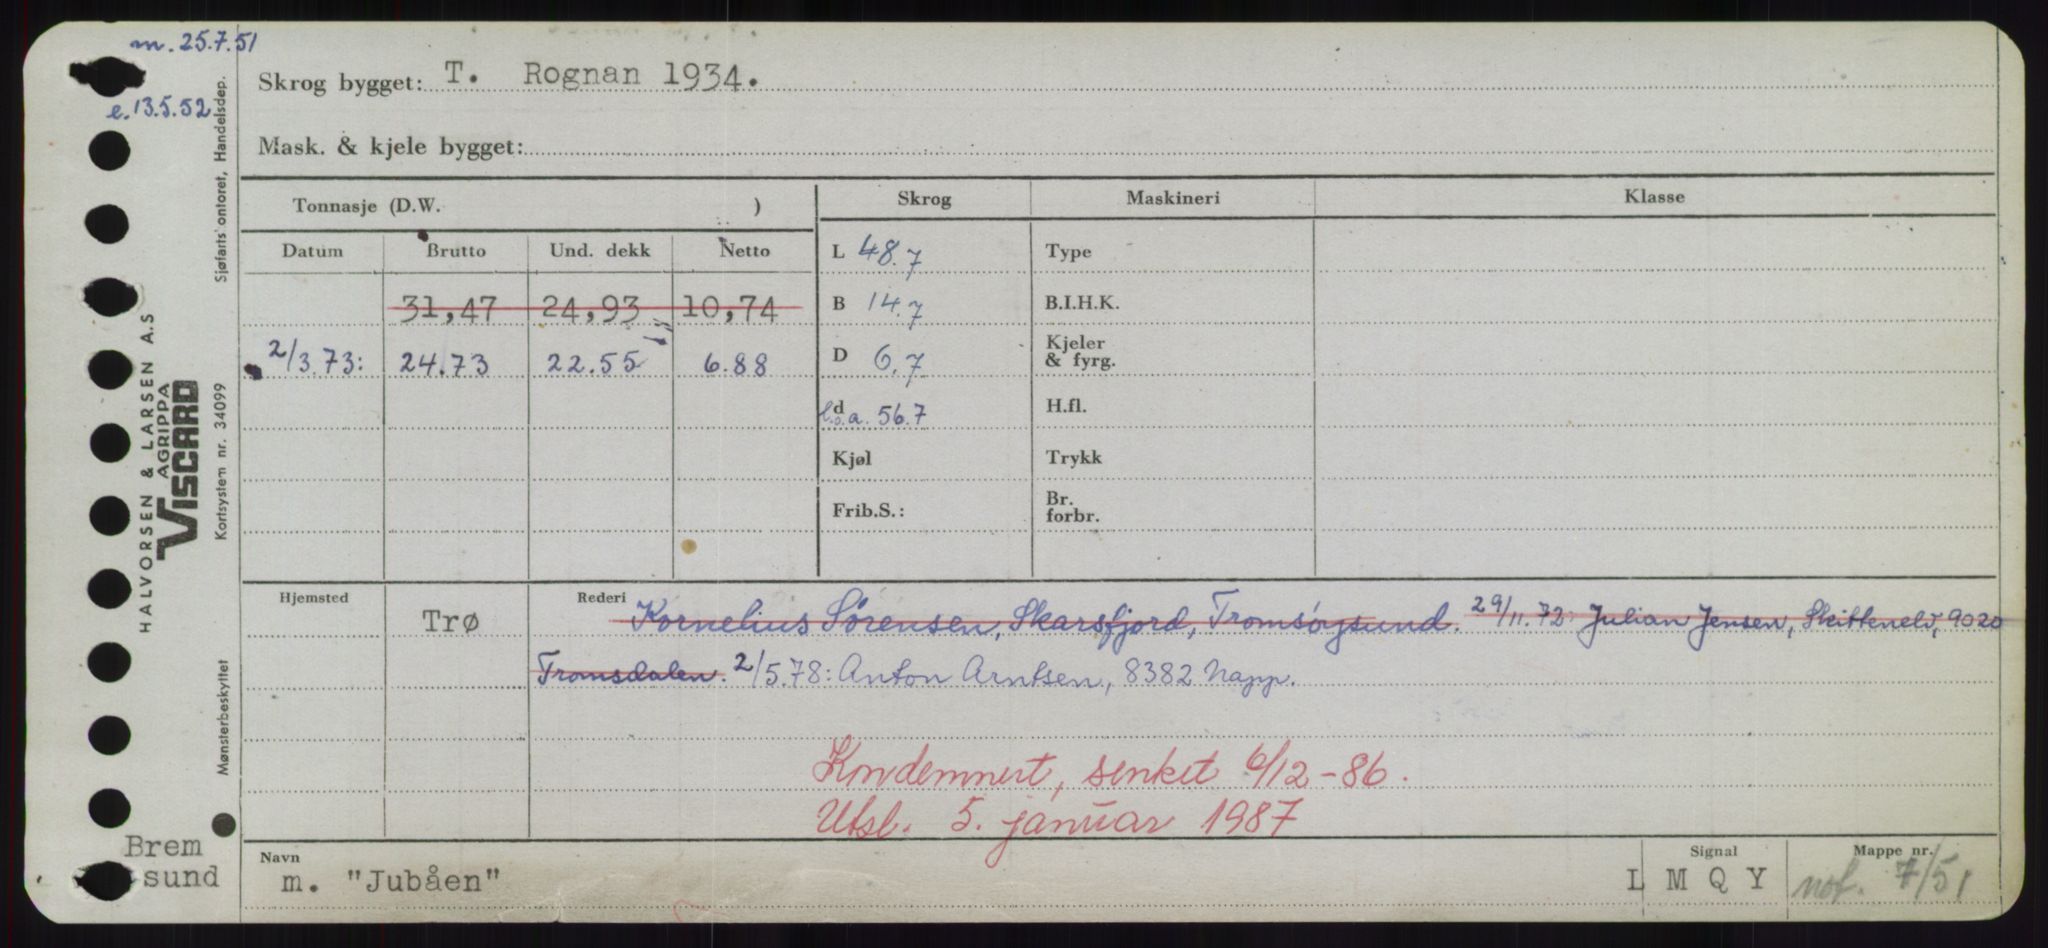 m. 25.7.51
e. 13.5.52
Skrog bygget: T. Rognan 1934.
Mask. & kjele bygget:
Tonnasje (D.W. )
Skrog Maskineri Klasse
Datum Brutto Und. dekk Netto
L 48.7 Type
31,47 24,93 10,74
B 14.7 B.I.H.K.
2/3.73: 24.73 22.55 6.88
D 6.7 Kjeler & fyrg.
d l.o.a. 56.7 H.fl.
Kjøl Trykk
Frib.S.: Br. forbr.
Hjemsted Trø Rederi Kornelius Sørensen, Skarsfjord, Tromsøysund. 29/11.72: Julian Jensen, Skittenelv, 9020
Tromsdalen. 2/5.78: Anton Arntsen, 8382 Napp.
Kondemnert, senket 6/12-86.
Utsl. 5. januar 1987
Navn m. "Jubåen"
Signal L M Q Y
Mappe nr. not. 7/51
Brem
sund
HALVORSEN & LARSEN A.S
AGRIPPA
VISCARD
Mønsterbeskyttet Kortsystem nr. 34099 Sjøfarts ontoret, Handelsdep.